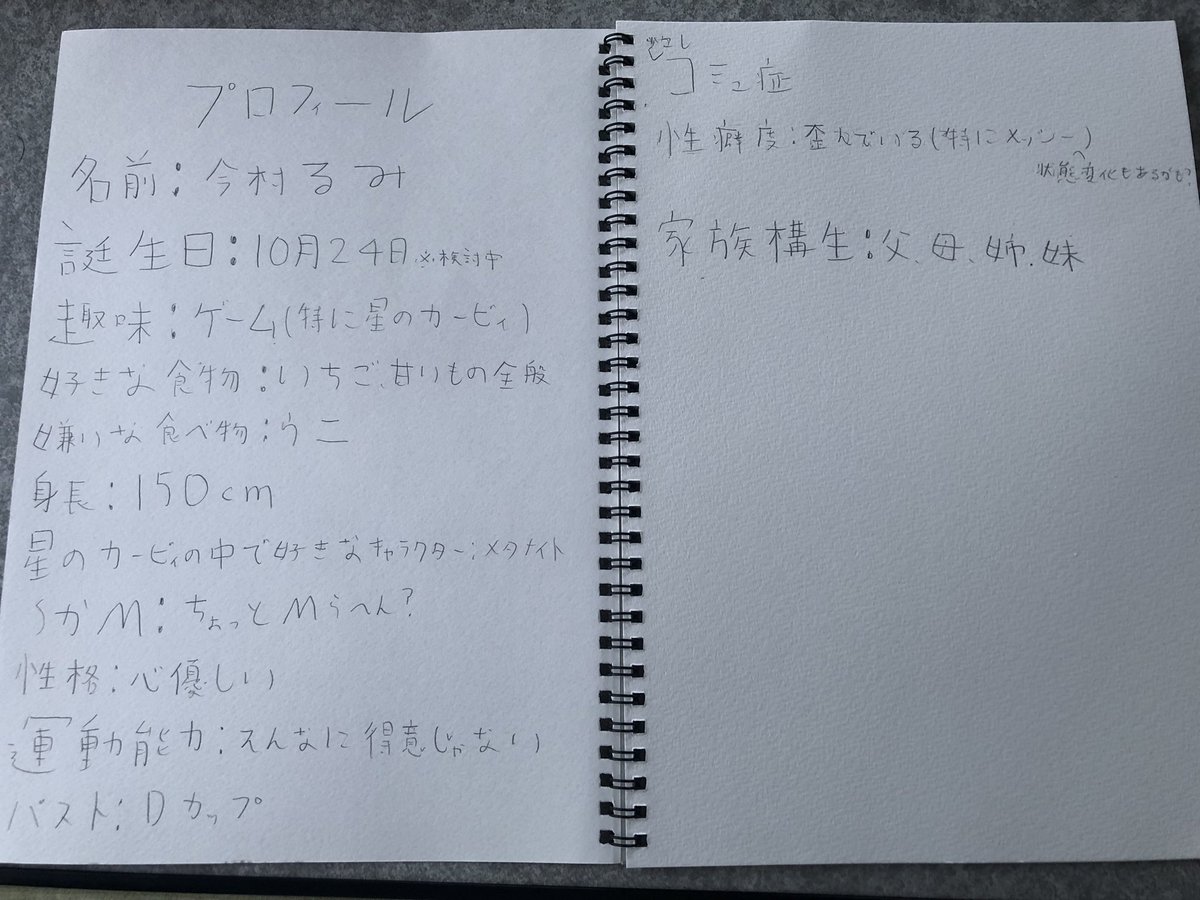 プロフィール
名前:今村るみ
誕生日:10月24日 ※検討中
趣味:ゲーム(特に星のカービィ)
好きな食物:いちご、甘いもの全般
嫌いな食べ物:ウニ
身長:150cm
星のカービィの中で好きなキャラクター:メタナイト
SかM:ちょっとMらへん?
性格:心優しい
運動能力:そんなに得意じゃない
バスト:Dカップ
少し
コミュ症
性癖度:歪んでいる(特にメッシー)
状態変化もあるかも?
家族構生:父、母、姉、妹